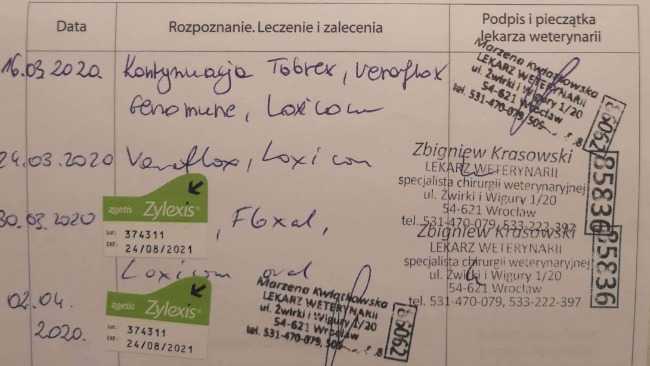 Data
Rozpoznanie. Leczenie i zalecenia
Podpis i pieczątka
lekarza weterynarii
16.03.2020.
Kontynuacja Tobrex, Veraflox
Genomune, Loxicom
Marzena Kwiatkowska
LEKARZ WETERYNARII
ul. Żwirki i Wigury 1/20
54-621 Wrocław
tel. 531-470-079, 509
86062
24.03.2020
Veraflox, Loxicom
Zbigniew Krasowski
LEKARZ WETERYNARII
specjalista chirurgii weterynaryjnej
ul. Żwirki i Wigury 1/20
54-621 Wrocław
tel. 531-470-079, 533-222-397
85836
30.03.2020
zoetis Zylexis®
Lot: 374311
EXP. 24/08/2021
, Floxal,
Loxicom oral
Zbigniew Krasowski
LEKARZ WETERYNARII
specjalista chirurgii weterynaryjnej
ul. Żwirki i Wigury 1/20
54-621 Wrocław
tel. 531-470-079, 533-222-397
85836
02.04.
2020.
zoetis Zylexis®
Lot: 374311
EXP. 24/08/2021
Marzena Kwiatkowska
LEKARZ WETERYNARII
ul. Żwirki i Wigury 1/20
54-621 Wrocław
tel. 531-470-079, 505
86062